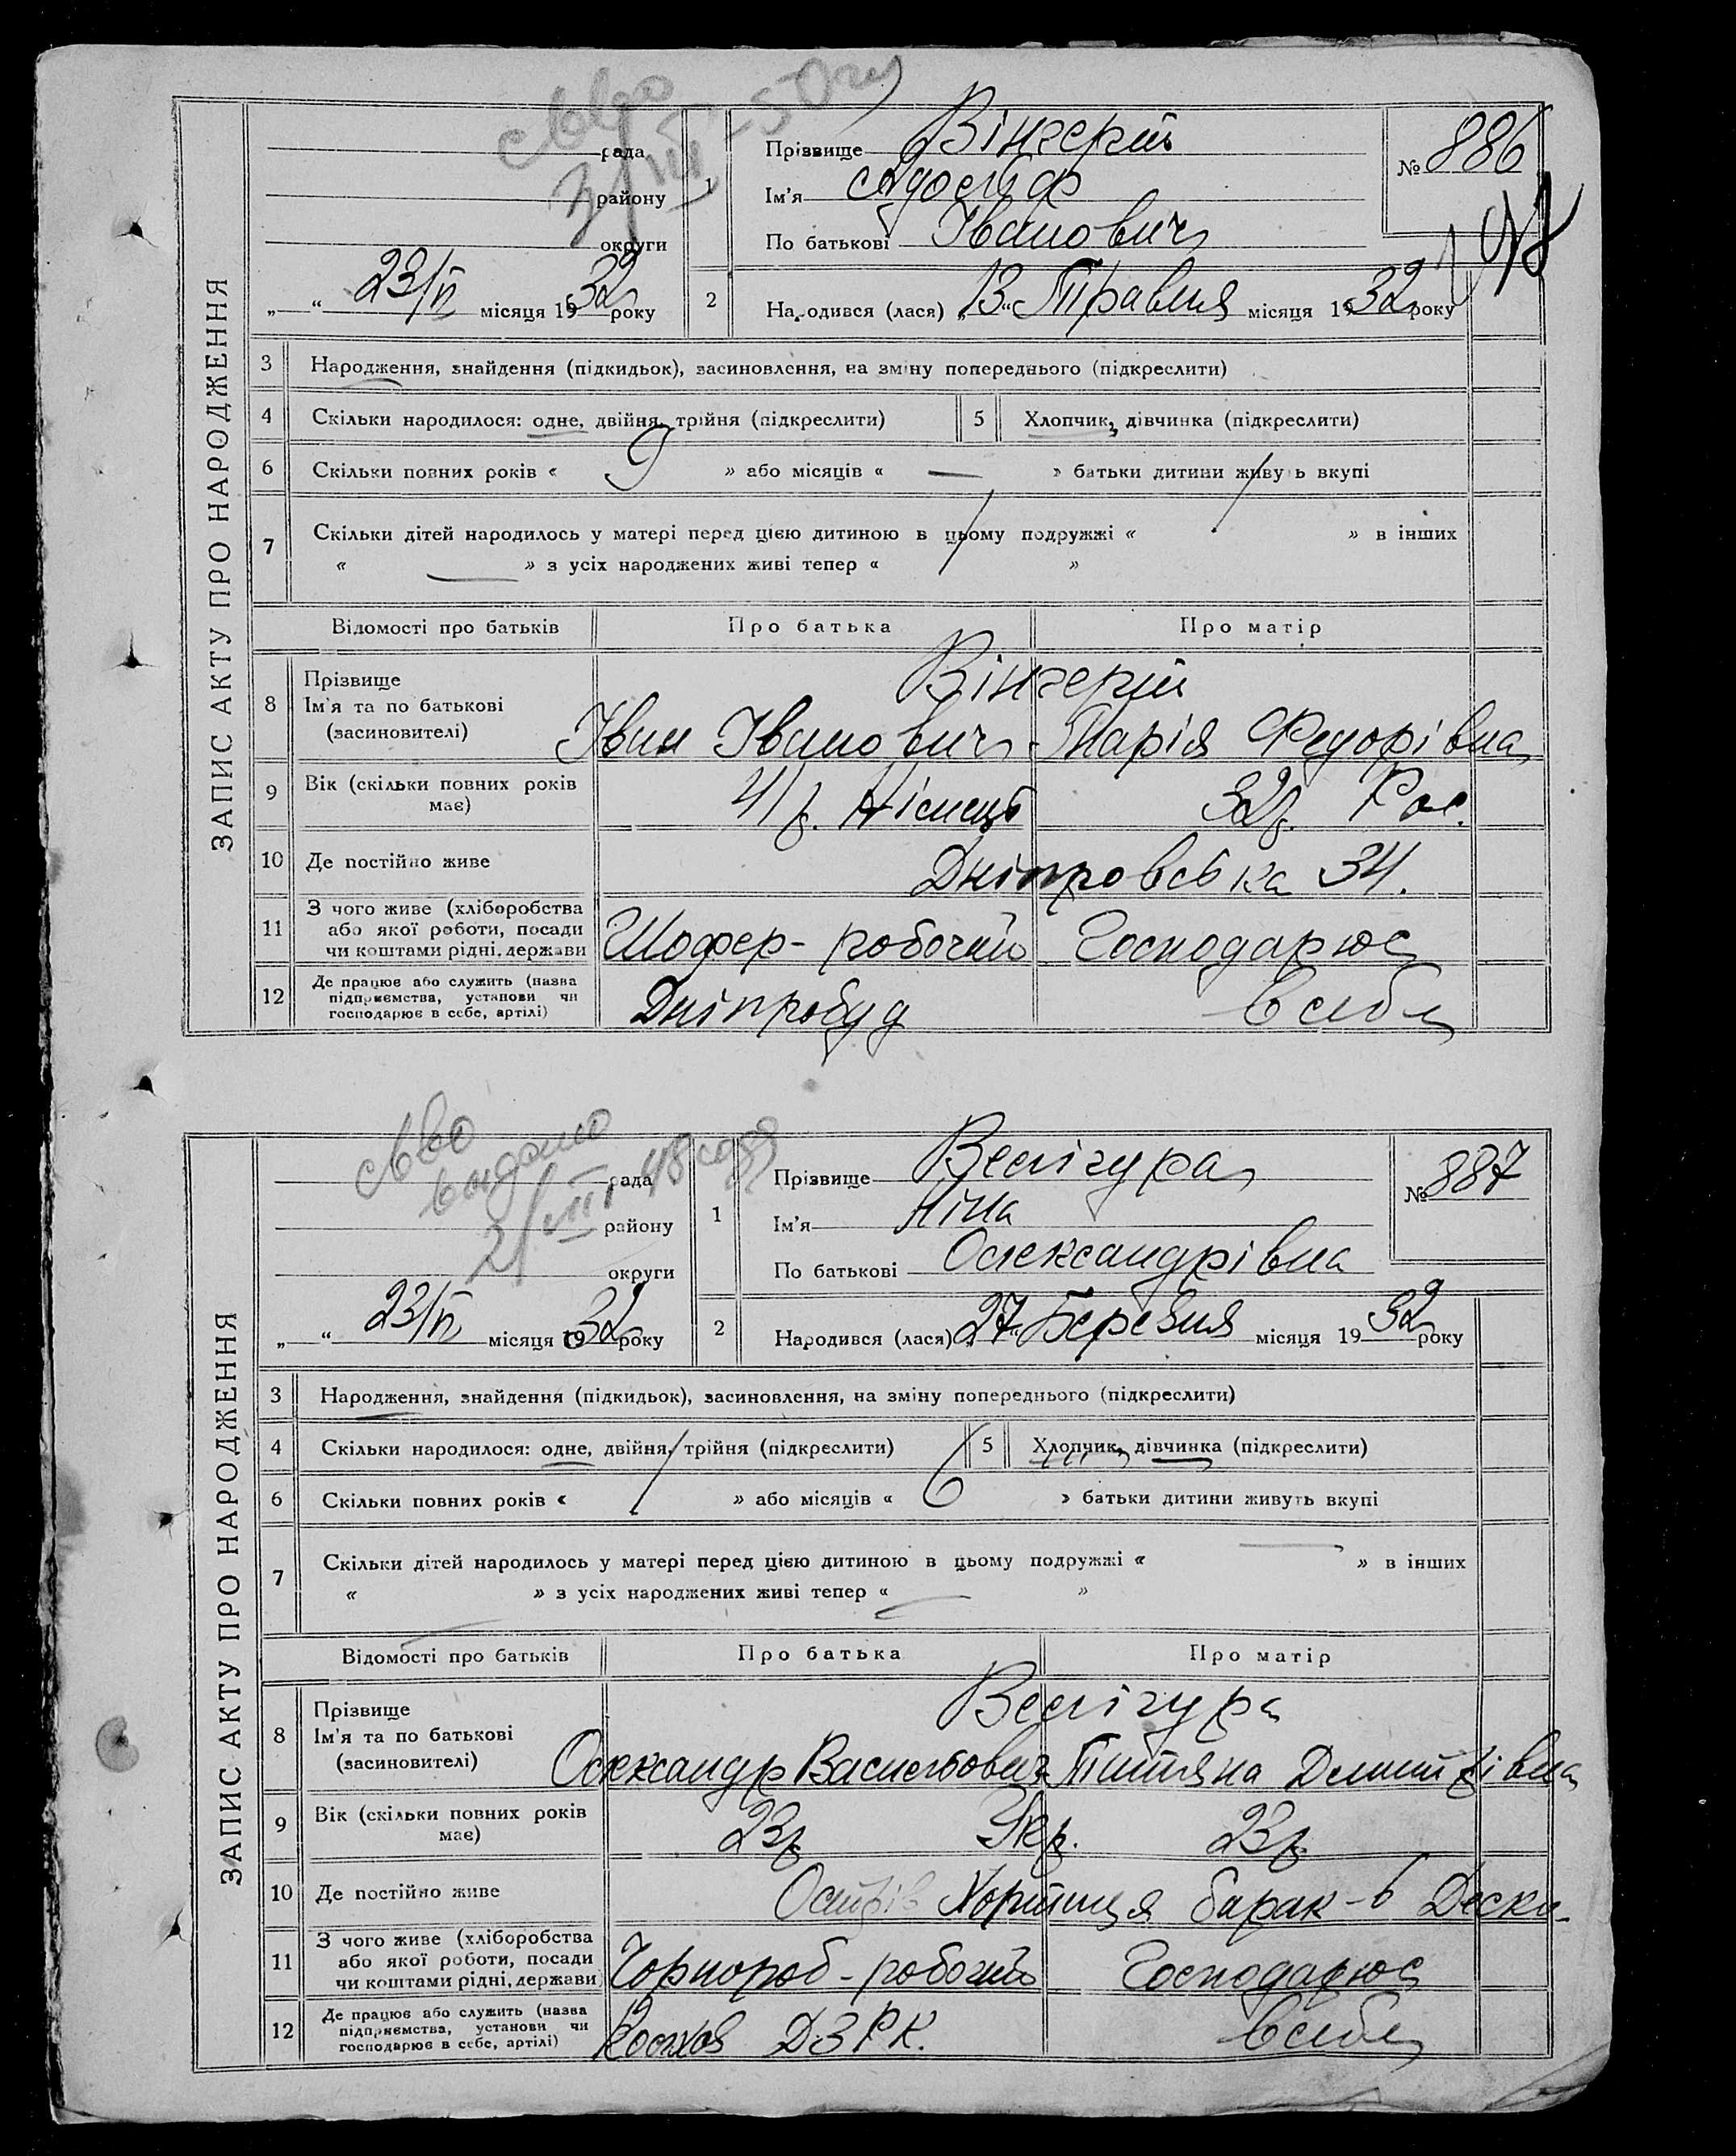 ЗАПИС АКТУ ПРО НАРОДЖЕННЯ
рада
району
округи
„ “ 23/VI місяця 1932 року
1
Прізвище Вінгерій
Ім'я Адольф
По батькові Іванович
№ 886
2
Народився (лася) „13“ Травня місяця 1932 року
3 Народження, знайдення (підкидьок), засиновлення, на зміну попереднього (підкреслити)
4 Скільки народилося: одне, двійня, трійня (підкреслити)
5 Хлопчик, дівчинка (підкреслити)
6 Скільки повних років « 9 » або місяців « — » батьки дитини живуть вкупі
7 Скільки дітей народилось у матері перед цією дитиною в цьому подружжі « / » в інших
« — » з усіх народжених живі тепер « / »
Відомості про батьків Про батька Про матір
8 Прізвище
Ім'я та по батькові
(засиновителі)
Вінгерій
Іван Іванович Марія Федорівна
9 Вік (скільки повних років
має)
41 р. Німець 32 р. Рос.
10 Де постійно живе Дніпровська 34.
11 З чого живе (хліборобства
або якої роботи, посади
чи коштами рідні, держави
Шофер - робочий Господарює
12 Де працює або служить (назва
підприємства, установи чи
господарює в себе, артілі)
Дніпробуд в себе
ЗАПИС АКТУ ПРО НАРОДЖЕННЯ
видано
рада
району
округи
„ “ 23/VI місяця 1932 року
1
Прізвище Велігура
Ім'я Ніна
По батькові Олександрівна
№ 887
2
Народився (лася) „27“ Березня місяця 1932 року
3 Народження, знайдення (підкидьок), засиновлення, на зміну попереднього (підкреслити)
4 Скільки народилося: одне, двійня, трійня (підкреслити)
5 Хлопчик, дівчинка (підкреслити)
6 Скільки повних років « / » або місяців « 6 » батьки дитини живуть вкупі
7 Скільки дітей народилось у матері перед цією дитиною в цьому подружжі « — » в інших
« » з усіх народжених живі тепер « — »
Відомості про батьків Про батька Про матір
8 Прізвище
Ім'я та по батькові
(засиновителі)
Велігура
Олександр Васильович Тітяна Дмитрівна
9 Вік (скільки повних років
має)
23 р. Укр. 23 р.
10 Де постійно живе Острів Хортиця барак - 6
11 З чого живе (хліборобства
або якої роботи, посади
чи коштами рідні, держави)
Чорнороб - робочий Господарює
12 Де працює або служить (назва
підприємства, установи чи
господарює в себе, артілі)
Радгосп ДЗРК. в себе